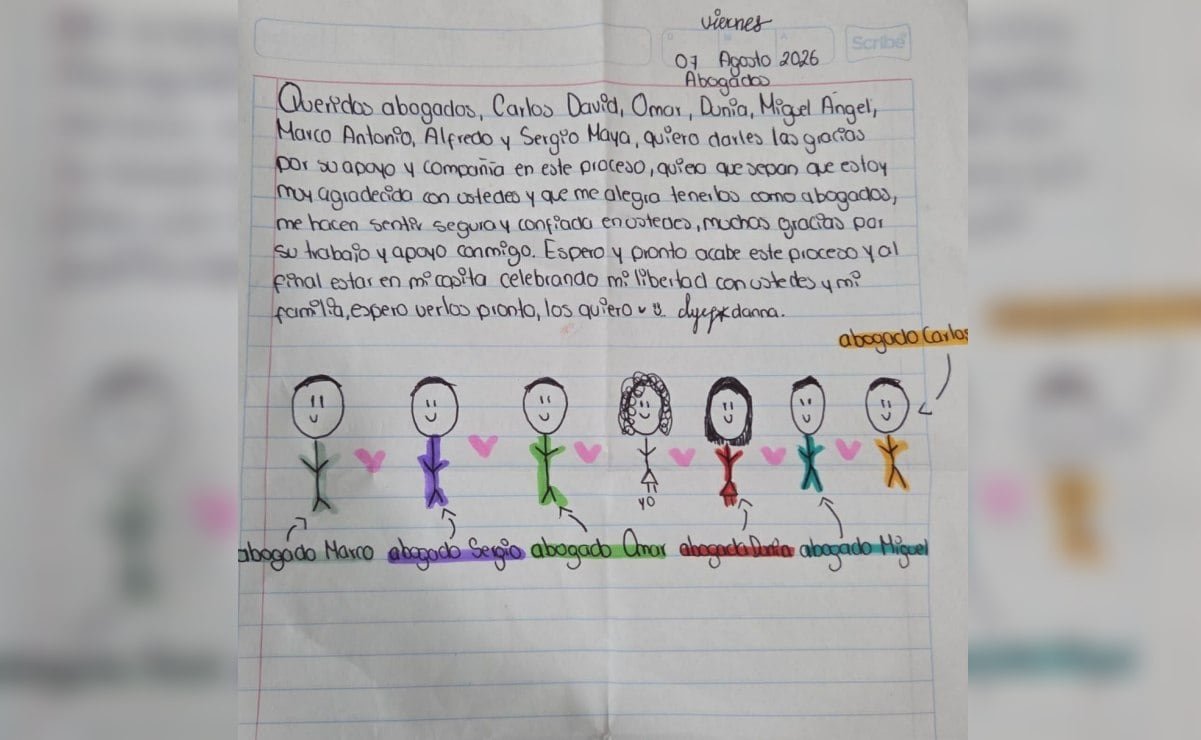 viernes
Scribe
07 Agosto 2026
Abogados
Queridos abogados, Carlos David, Omar, Dunia, Miguel Ángel,
Marco Antonio, Alfredo y Sergio Maya, quiero darles las gracias
por su apoyo y compañia en este proceso, quiero que sepan que estoy
muy agradecida con ustedes y que me alegra tenerlos como abogados,
me hacen sentir segura y confiada en ustedes, muchas gracias por
su trabajo y apoyo conmigo. Espero y pronto acabe este proceso y al
final estar en mi casita celebrando mi libertad con ustedes y mi
familia, espero verlos pronto, los quiero danna.
abogado Carlos
yo
abogado Marco abogado Sergio abogado Omar abogada Dunia abogado Miguel